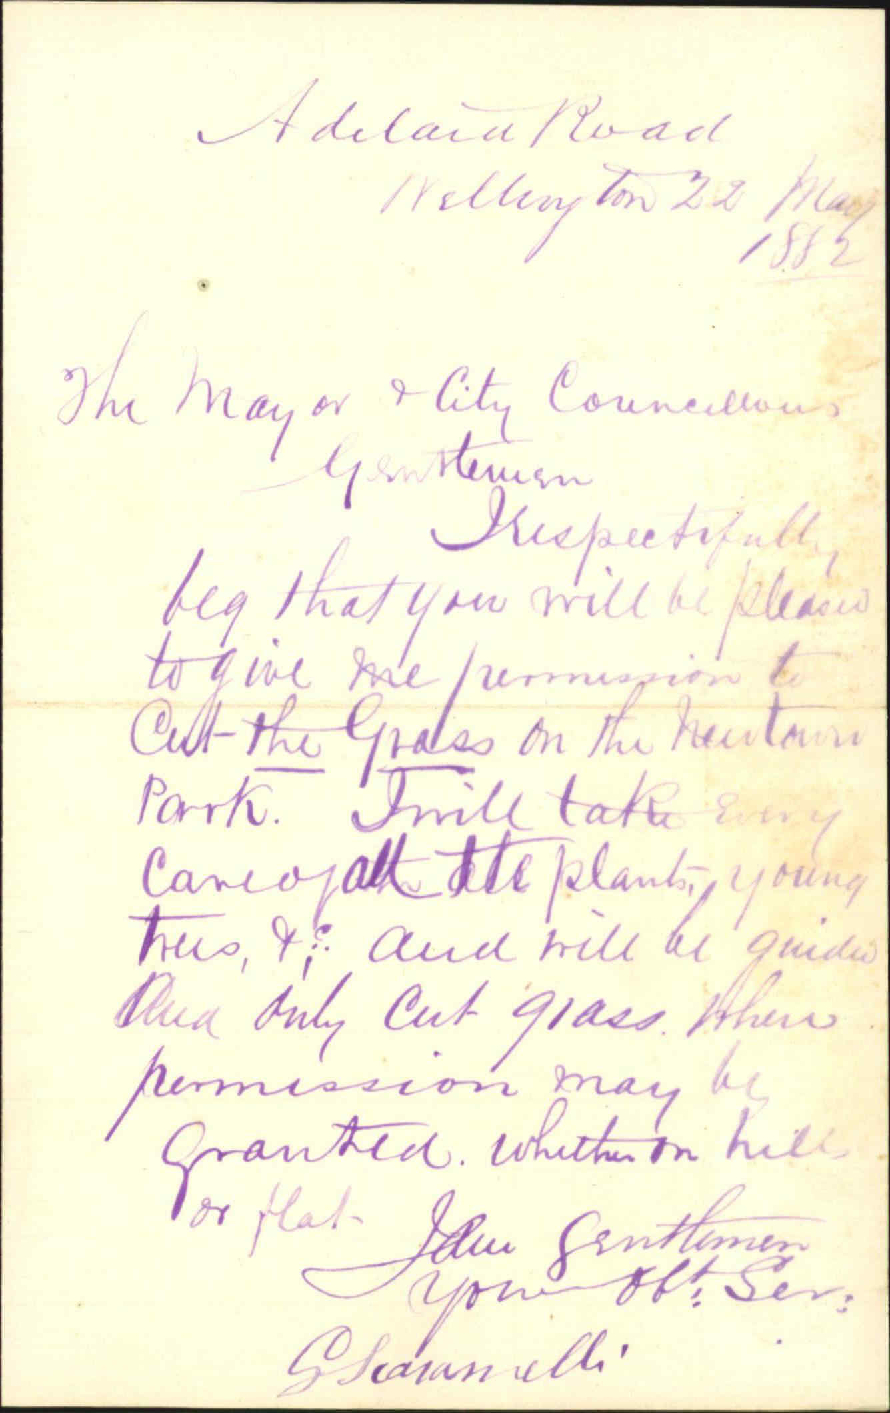 Adelaid Road
Wellington 22 May
1882
The Mayor & City Councillours
Gentlemen
I respectfully
beg that you will be pleased
to give me permission to
Cut the Grass on the Newtown
Park. I will take every
Care of all the plants, young
trees, &c: and will be guided
And only Cut grass. where
permission may be
granted. Whether on hills
or flat
I am Gentlemen
Your Obt. Ser: